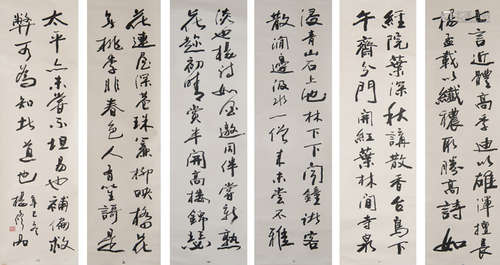 七言近體高季迪以雄渾擅長
楊孟載以纖穠取勝高詩如
經院葉深秋講散香台鳥下
午齋分門開紅葉林間寺泉
浸青山石上池林下聞鐘客
散澗邊汲水一僧來未嘗不雅
淡也楊詩如邀同伴嘗新熟
花趁初晴賞半開高樓錦瑟
花連屋深巷珠簾柳映橋花
無桃李非春色人有笙謌是
太平亦未嘗不坦易也補偏救
弊可為知此道也
辛巳冬